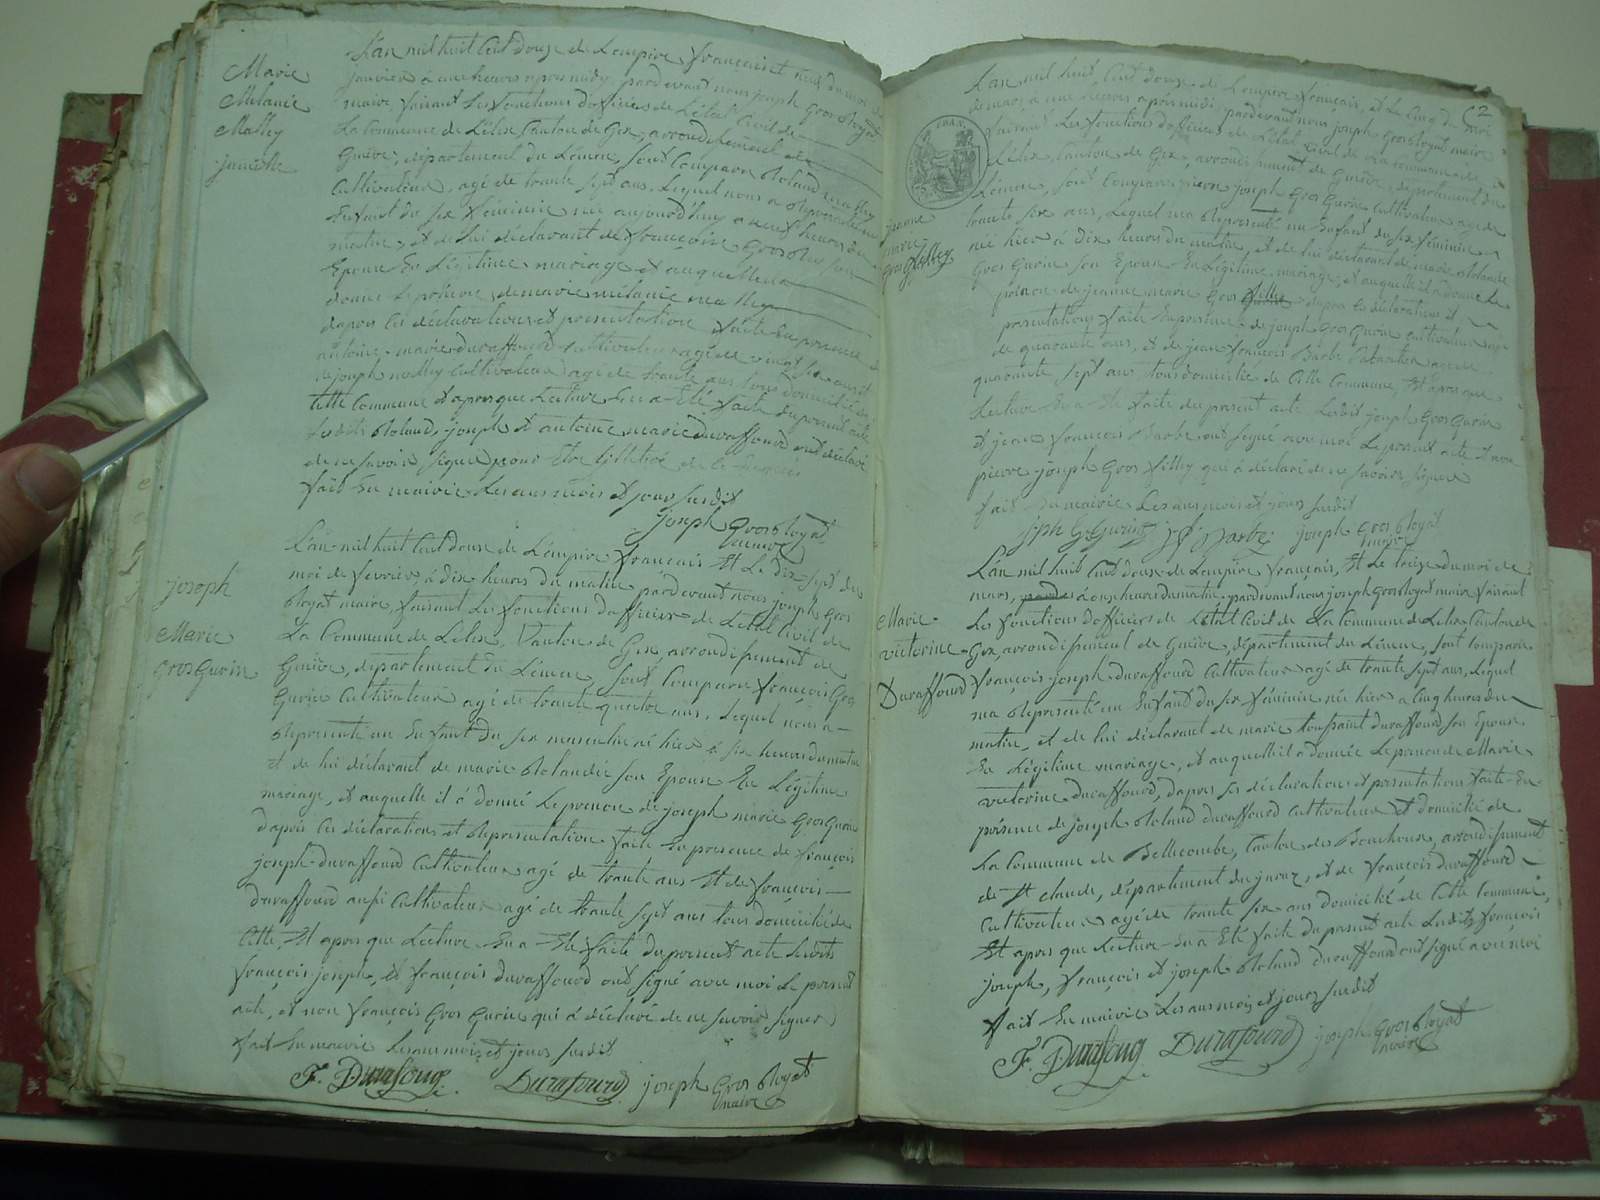 Marie
Melanie
Malley
jumelle
L'an mil huit Cent douze de L'empire français et du mois de
janvier à heures après midy pardevant nous joseph Gros Royat
maire faisant les fonctions d'officier de L'état Civil de
La Commune de Lélex Canton de Gex, arrondissement de
Genève, département du Léman, sont Comparu Roland
Cultivateur, agé de trante sept ans. Lequel nous a Représenté un
Enfant du sex féminin née aujourd'huy a heures du
matin, et de lui déclarant de françoise Gros son
Epouse En Légitime mariage et auquelle il a
donné Le prénom de marie mélanie
dapres les déclarations et présentation faite En présence
antoine marie duraffourd cultivateur agé de vingt six ans et
de joseph Cultivateur agé de trante ans tous domicilié de
Cette Commune Et apres que Lecture En a Eté faite du présent acte
Lesdits Roland, joseph Et antoine marie duraffourd ont déclaré
de ne savoir signer pour Etre de Ce
fait En mairie Les ans mois et jours susdit
joseph Gros Royat
maire
joseph
Marie
Gros Gurin
L'an mil huit Cent douze de L'empire français Et Le dix sept du
moi de fevrier à dix heures du matin pardevant nous joseph Gros
Royat maire, faisant Les fonctions d'officier de L'état Civil de
La Commune de Lélex, Canton de Gex, arrondissement de
Genève, département du Léman, sont Comparu françois Gros
Gurin Cultivateur agé de trante quatre ans. Lequel nous a
Représenté un Enfant du sex masculin né hier à six heures du matin
et de lui déclarant de marie Rolandée son Epouse En Légitime
mariage, et auquelle il à donné Le prénom de joseph marie Gros Gurin
dapres Les déclarations et Représentation faite En présence de françois
joseph duraffourd Cultivateur agé de trante ans Et de françois
duraffourd aussi Cultivateur agé de trante sept ans tous domicilié de
Cette, Et apres que Lecture En a Eté faite du présent acte Lesdits
françois joseph, et françois duraffourd ont signé avec moi Le présent
acte, et non françois Gros Gurin qui à déclaré de ne savoir signer
fait En mairie Les ans mois et jours susdit
F. Durafourg Durafourd joseph Gros Royat
maire
2
jeanne
marie
Gros
L'an mil huit Cent douze de L'empire français, et Le cinq du moi
de mars à une heures après midi pardevant nous joseph Gros Royat maire
faisant Les fonctions d'officier de L'état Civil de La Commune de
Lélex, Canton de Gex, arrondissement de Genève, département du
Léman, sont Comparu pierre joseph Gros Gurin Cultivateur agé de
trante six ans, Lequel ma Représenté un Enfant du sex féminin
née hier à dix heures du matin, et de lui déclarant de marie Rolande
Gros Gurin son Epouse En Légitime mariage, et auquelle il a donné Le
prénom de jeanne marie Gros dapres Les déclarations et
présentations faite En présence de joseph Gros Gurin cultivateur agé
de quarante ans, et de jean françois Barbe agé de
quarante sept ans, tous domicilié de Cette Commune, Et apres que
Lecture En a Eté faite du présent acte Lesdit joseph Gros Gurin
Et jean françois Barbe ont signé avec moi Le présent acte et non
pierre joseph Gros qui à déclaré de ne savoir signer
fait En mairie Les ans mois et jours susdit
Jph G Gurin J F Barbe joseph Gros Royat
maire
Marie
victorine
Duraffourd
L'an mil huit Cent douze de L'empire français, Et Le treize du moi de
mars, à onze heures du matin pardevant nous joseph Gros Royat maire faisant
Les fonctions d'officier de L'état Civil de La Commune de Lélex Canton de
Gex, arrondissement de Genève, département du Léman, sont Comparu
françois joseph duraffourd Cultivateur agé de trante sept ans, Lequel
ma Représenté un Enfant du sex féminin née hier à cinq heures du
matin, et de lui déclarant de marie toussaint duraffourd son Epouse
En Légitime mariage, et auquelle il a donnée Le prénom de Marie
victorine duraffourd, dapres Les déclarations et présentations faite En
présence de joseph Roland duraffourd Cultivateur Et domicilié de
La Commune de Bellecombe, Canton des Bouchoux, arrondissement
de St Claude, département du juraz, et de françois duraffourd
Cultivateur agé de trante six ans domicilié de Cette Commune,
Et apres que Lecture En a Eté faite du présent acte Lesdits françois
joseph, françois et joseph Roland duraffourd ont signé avec moi
fait En mairie Les ans mois et jours susdit
F. Durafourg Durafourd joseph Gros Royat
maire